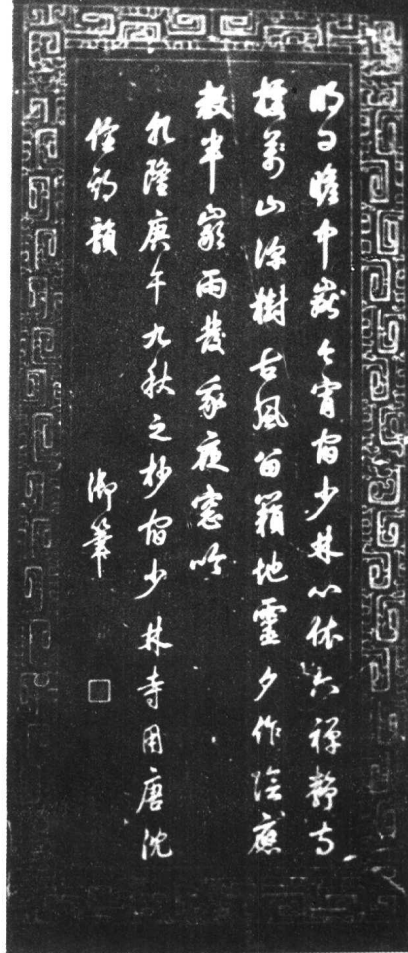 明日瞻中嶽今宵宿少林心依六禪靜寺
據萬山深樹古風留籟地靈夕作陰應
教半巖雨發我夜窓吟
乾隆庚午九秋之杪宿少林寺用唐沈
佺期韻
御筆